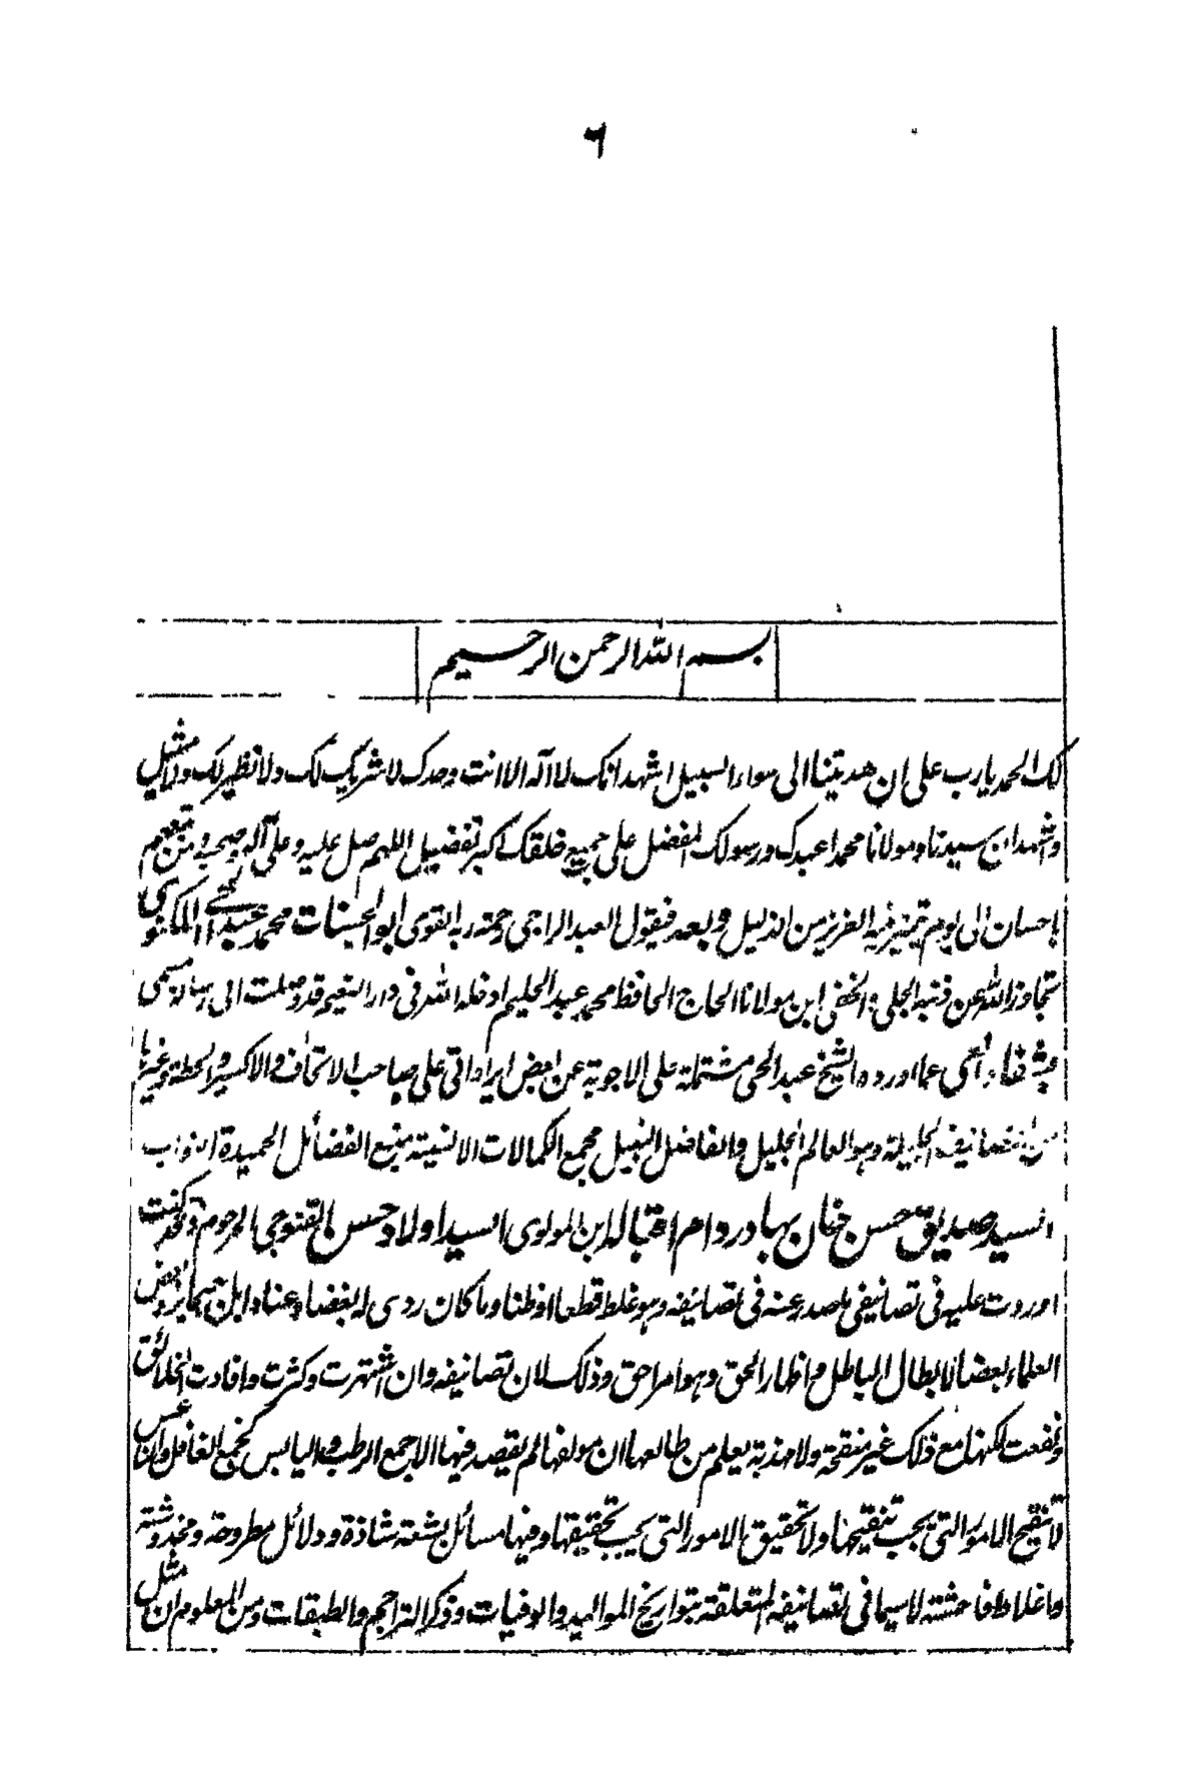 ٦
بسم الله الرحمن الرحيم
لك الحمد يا رب على ان هديتنا الى سواء السبيل اشهد انك لا اله الا انت وحدك لا شريك لك ولا نظير لك ولا مثيل
واشهد ان سيدنا ومولانا محمدا عبدك ورسولك المفضل على جميع خلقك اكبر تفضيل اللهم صل عليه وعلى آله وصحبه ومن تبعهم
باحسان الى يوم تميز فيه العزيز من الذليل وبعد فيقول العبد الراجي رحمة ربه القوى ابو الحسنات محمد عبد الحي اللكنوي
تجاوز الله عن ذنبه الجلى والخفى ابن مولانا الحاج الحافظ محمد عبد الحليم ادخله الله فى دار النعيم قد وصلت الى رسالة مسمى
بشفاء العى عما اورده الشيخ عبد الحى مشتملة على الاجوبة عن بعض ايراداتى على صاحب الاتحاف والاكسير والحطة وغيرها
من تصانيفه الجليلة وهو العالم الجليل والفاضل النبيل مجمع الكمالات الانسية منبع الفضائل الحميدة النواب
السيد صديق حسن خان بهادر دام اقباله ابن المولوى السيد اولاد حسن القنوجى المرحوم وقد كنت
اوردت عليه فى تصانيفى بما صدر عنه فى تصانيفه وهو غلط قطعا او ظنا وما كان ردى له بغضا وعنادا بل كما يرد بعض
العلماء بعضا لابطال الباطل واظهار الحق وهو امر احق وذلك لان تصانيفه وان اشتهرت وكثرت وافادت الخلائق
ونفعت لكنها مع ذلك غير منقحة ولا مهذبة يعلم من طالعها ان مولفها لم يقصد فيها الا جمع الرطب واليابس كجمع الغافل والناعس
لا تنقيح الامور التى يجب تنقيحها ولا تحقيق الامور التى يجب تحقيقها وفيها مسائل بشعة شاذة ودلائل مطروحة ومخدوشة
واغلاط فاحشة لا سيما فى تصانيفه المتعلقة بتواريخ المواليد والوفيات وذكر التراجم والطبقات ومن المعلوم ان مثل